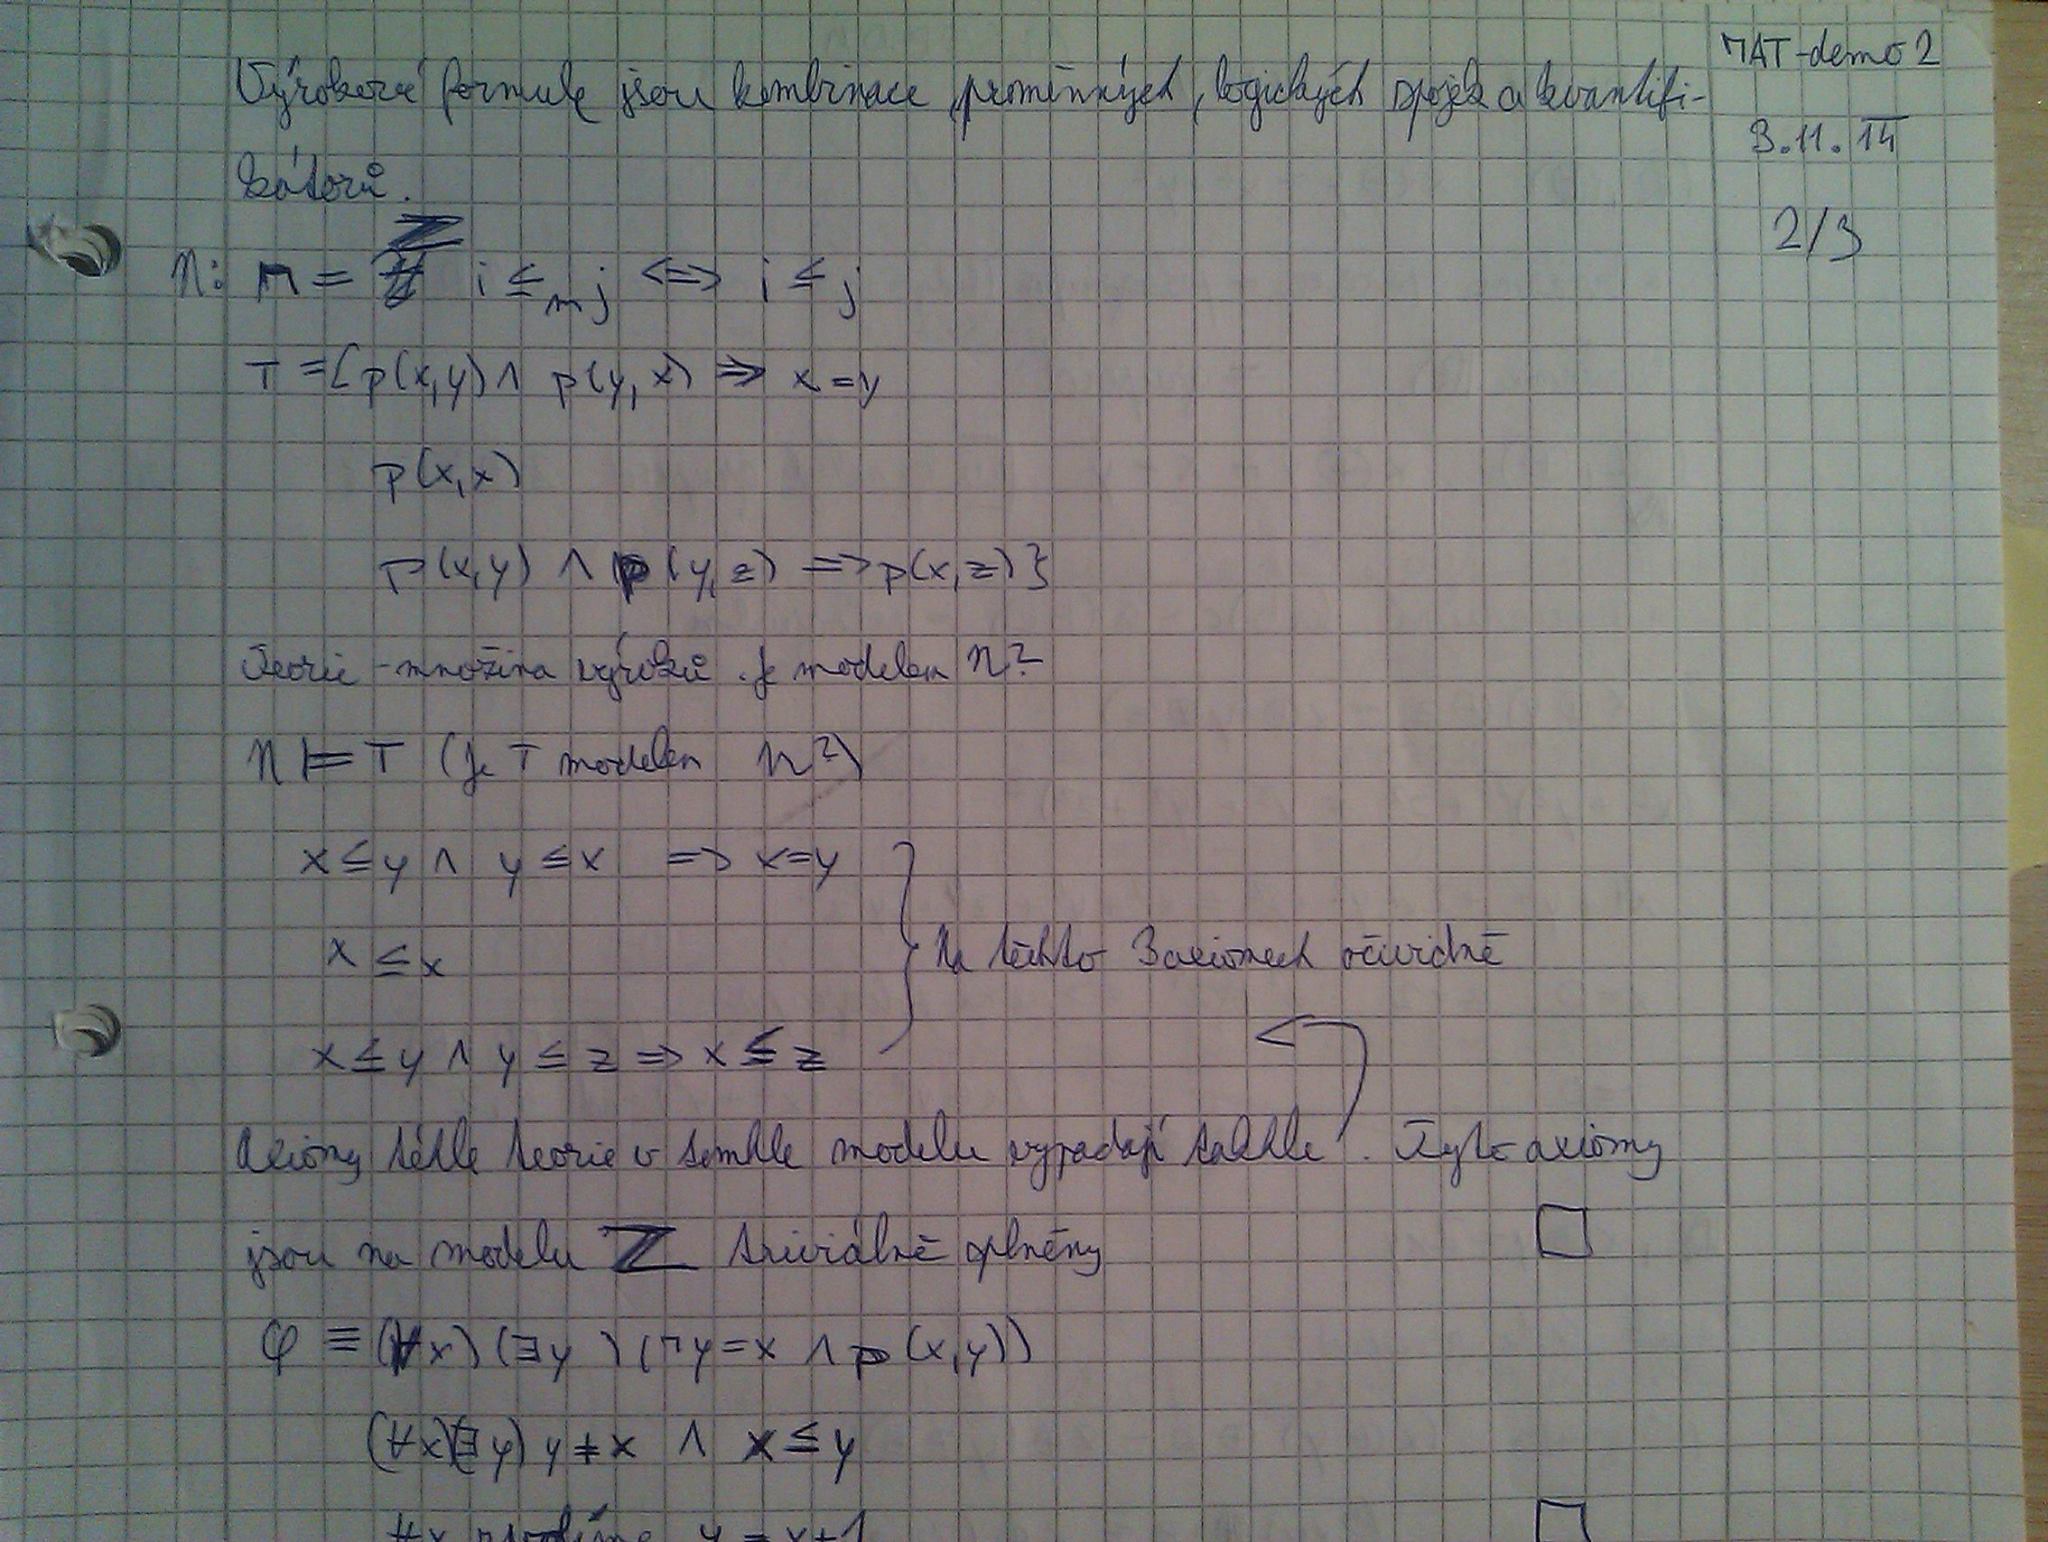 MAT-demo 2
Výrokové formule jsou kombinace proměnných, logických spojek a kvantifi-
3.11.14
kátorů.
2/3
Z
n: M = i ≤m j <=> i ≤ j
T = { p(x,y) ∧ p(y,x) => x = y
p(x,x)
p(x,y) ∧ p(y,z) => p(x,z) }
Teorie - množina výroků. Je modelem n?
n ⊨ T (Je T modelem n?)
x ≤ y ∧ y ≤ x => x=y
x ≤ x
Na těchto 3 axiomech očividně
x ≤ y ∧ y ≤ z => x ≤ z
Axiomy téhle teorie v tomhle modelu vypadají takhle. Tyto axiomy
jsou na modelu Z triviálně splněny
φ ≡ (∀x)(∃y)(¬y=x ∧ p(x,y))
(∀x)(∃y) y ≠ x ∧ x ≤ y
∀x zvolíme y = x+1